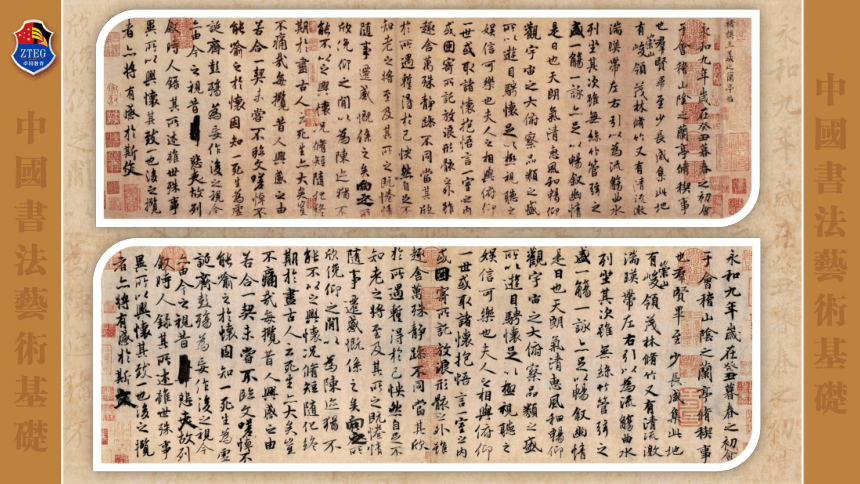 ZTEG
中國書法藝術基礎
中國書法藝術基礎
褚摸王羲之蘭亭帖
永和九年歲在癸丑暮春之初會
于會稽山陰之蘭亭脩稧事
也羣賢畢至少長咸集此地
有崇山峻領茂林脩竹又有清流激
湍暎帶左右引以為流觴曲水
列坐其次雖無絲竹管弦之
盛一觴一詠亦足以暢敘幽情
是日也天朗氣清惠風和暢仰
觀宇宙之大俯察品類之盛
所以遊目騁懷足以極視聽之
娛信可樂也夫人之相與俯仰
一世或取諸懷抱悟言一室之內
或因寄所託放浪形骸之外雖
趣舍萬殊靜躁不同當其欣
於所遇暫得於己怏然自足不
知老之將至及其所之既惓情
隨事遷感慨係之矣向之所
欣俛仰之閒以為陳迹猶不
能不以之興懷況脩短隨化終
期於盡古人云死生亦大矣豈
不痛哉每攬昔人興感之由
若合一契未嘗不臨文嗟悼不
能喻之於懷固知一死生為虛
誕齊彭殤為妄作後之視今
亦由今之視昔悲夫故列
敘時人錄其所述雖世殊事
異所以興懷其致一也後之攬
者亦將有感於斯文
永和九年歲在癸丑暮春之初會
于會稽山陰之蘭亭脩稧事
也羣賢畢至少長咸集此地
有崇山峻領茂林脩竹又有清流激
湍暎帶左右引以為流觴曲水
列坐其次雖無絲竹管弦之
盛一觴一詠亦足以暢敘幽情
是日也天朗氣清惠風和暢仰
觀宇宙之大俯察品類之盛
所以遊目騁懷足以極視聽之
娛信可樂也夫人之相與俯仰
一世或取諸懷抱悟言一室之內
或因寄所託放浪形骸之外雖
趣舍萬殊靜躁不同當其欣
於所遇暫得於己怏然自足不
知老之將至及其所之既惓情
隨事遷感慨係之矣向之所
欣俛仰之閒以為陳迹猶不
能不以之興懷況脩短隨化終
期於盡古人云死生亦大矣豈
不痛哉每攬昔人興感之由
若合一契未嘗不臨文嗟悼不
能喻之於懷固知一死生為虛
誕齊彭殤為妄作後之視今
亦由今之視昔悲夫故列
敘時人錄其所述雖世殊事
異所以興懷其致一也後之攬
者亦將有感於斯文